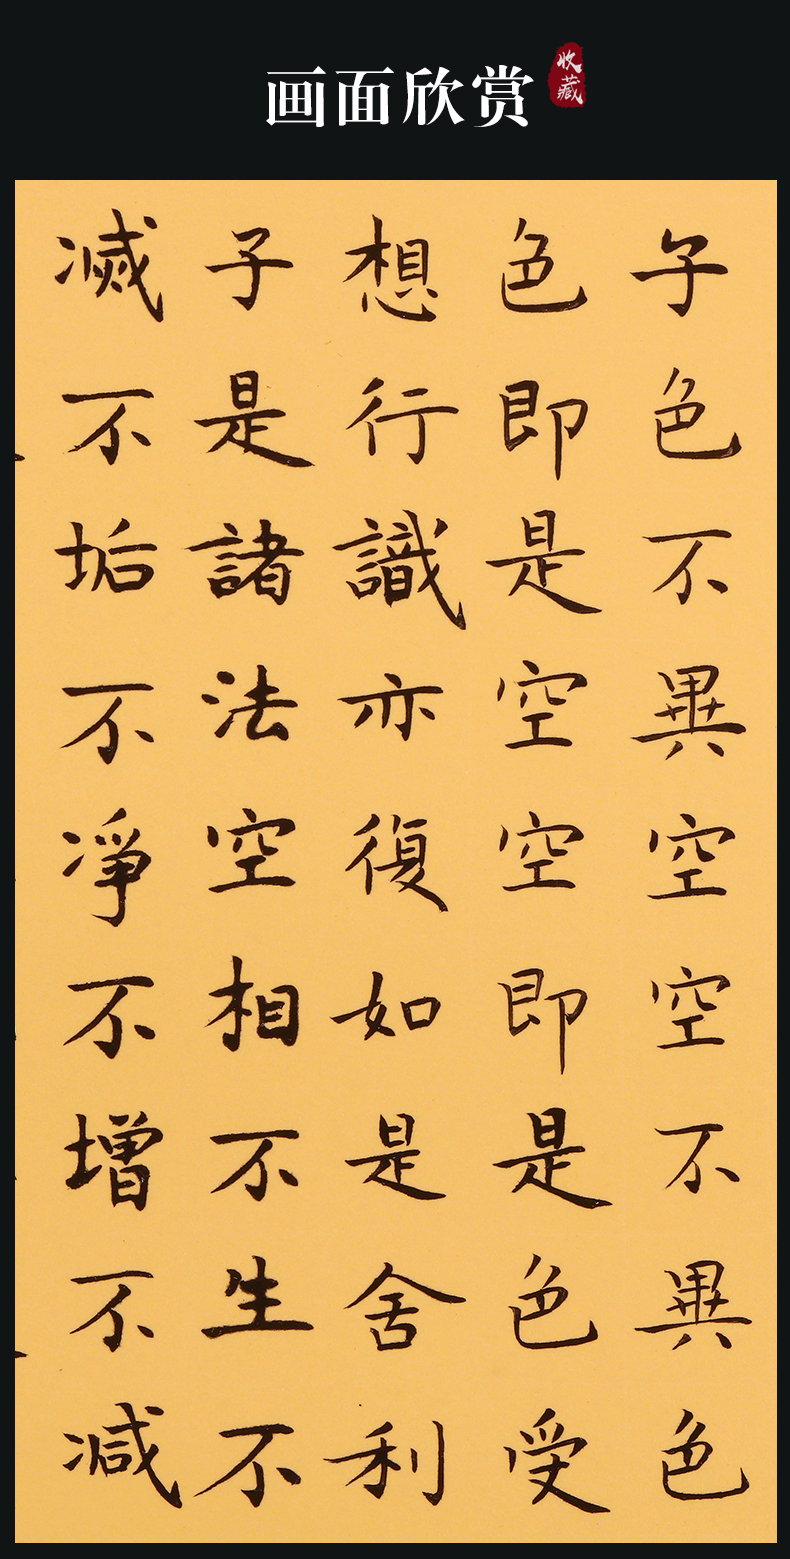 画面欣赏
收藏
子色不異空空不異色
色即是空空即是色受
想行識亦復如是舍利
子是諸法空相不生不
滅不垢不淨不增不減